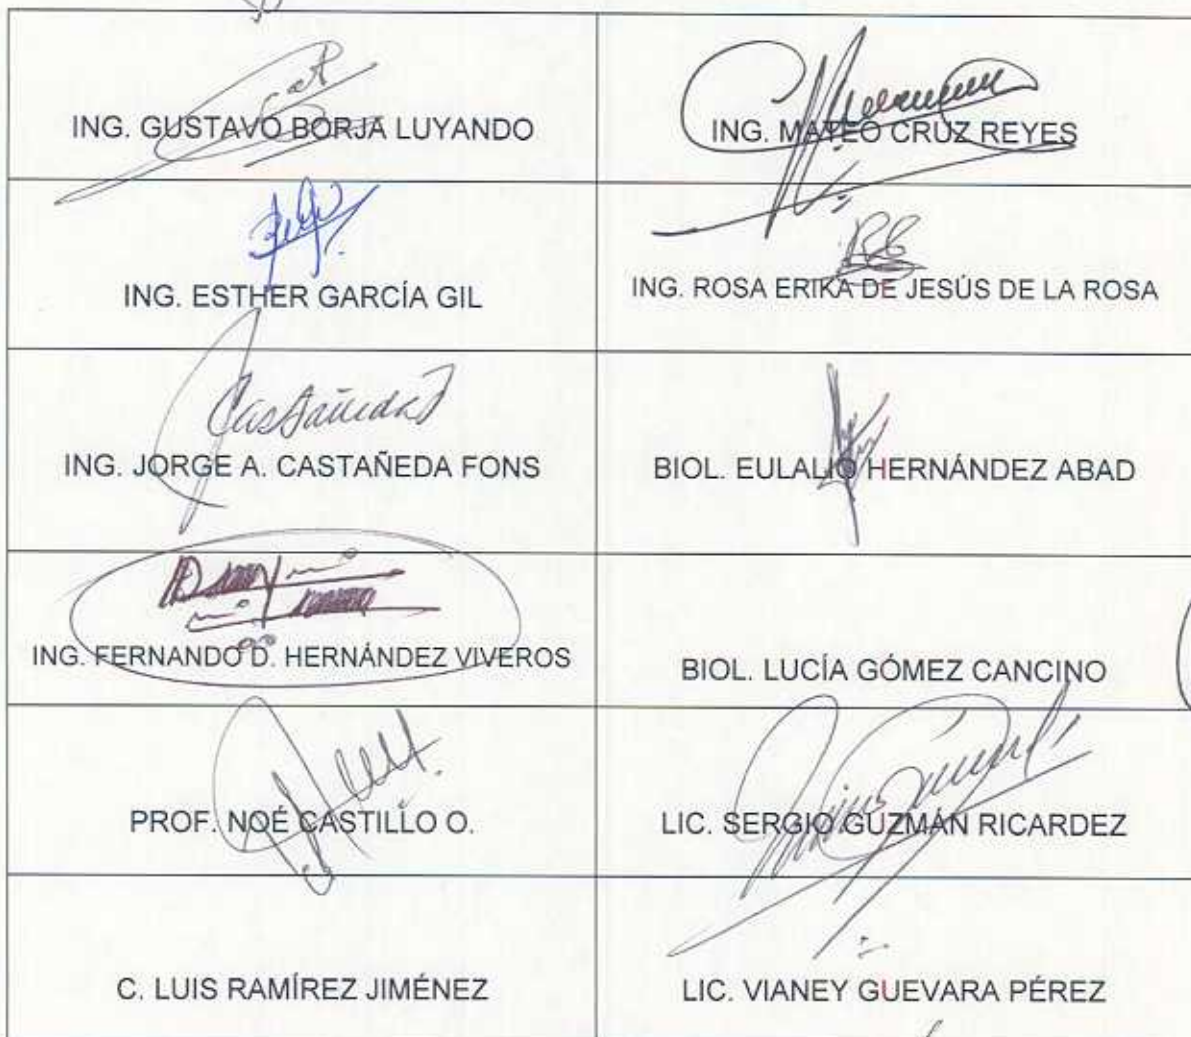 ING. GUSTAVO BORJA LUYANDO
ING. MATEO CRUZ REYES
ING. ESTHER GARCÍA GIL
ING. ROSA ERIKA DE JESÚS DE LA ROSA
Castañeda
ING. JORGE A. CASTAÑEDA FONS
BIOL. EULALIO HERNÁNDEZ ABAD
ING. FERNANDO D. HERNÁNDEZ VIVEROS
BIOL. LUCÍA GÓMEZ CANCINO
PROF. NOÉ CASTILLO O.
LIC. SERGIO GUZMÁN RICARDEZ
C. LUIS RAMÍREZ JIMÉNEZ
LIC. VIANEY GUEVARA PÉREZ